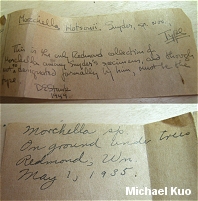 Morchella hotsonii, Snyder, sp. nov.
Type
This is the only Redmond collection of
Morchella among Snyder's specimens, and though
not designated formally by him, must be the
type.
D.E. Stuntz
Morchella sp.
On ground under trees
Redmond, Wn.
May 1, 1935.
Michael Kuo